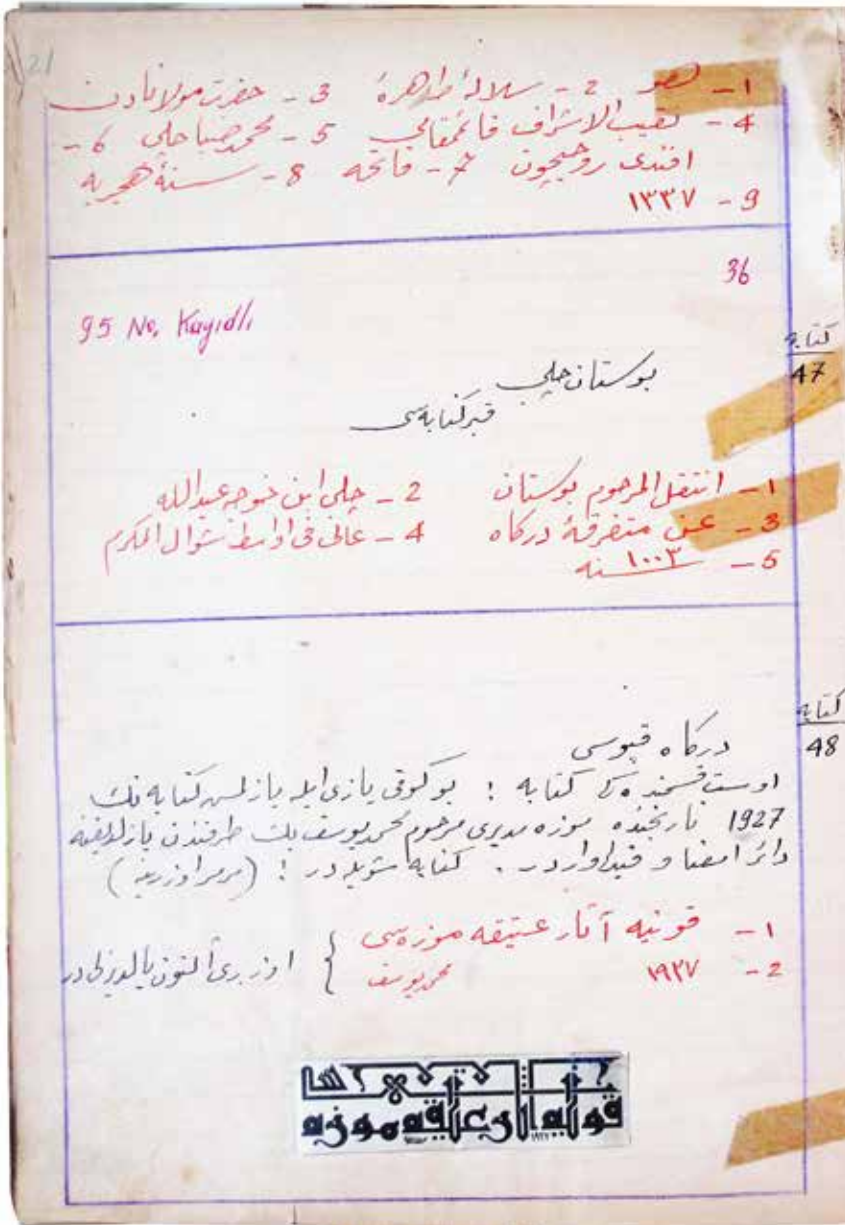 21
1 - هو 2 - سلالهٔ طاهرهٔ 3 - حضرت مولانادن
4 - نقیب الاشراف قائمقامی 5 - محمد ضیا چلبی 6 -
افندی روحیچون 7 - فاتحه 8 - سنهٔ هجریه
9 - ١٣٣٧
36
95 No. Kayıdlı
کتابه
47
بوستان چلبی
قبر کتابه سی
1 - انتقل المرحوم بوستان 2 - چلبی ابن خوجه عبدالله
3 - عن متفرقهٔ درکاه 4 - عالی فی اواسط شوال المکرم
5 - سنه ١٠٠٣
کتابه
48
درکاه قپوسی
اوست قسمنده کی کتابه : بو کوفی یازی ایله یازلمس کتابه نك
1927 تاریخنده موزه مدیری مرحوم محمد یوسف بك طرفندن یازلدیغنه
دائر امضا و قیداواردر . کتابه شویله در : (مرمر اوزرینه)
1 - قونیه آثار عتیقه موزه سی } اوزری آلتون یالدیزلی در
2 - ١٩٢٧ محمد یوسف
قونیه اثار عتیقه موزه